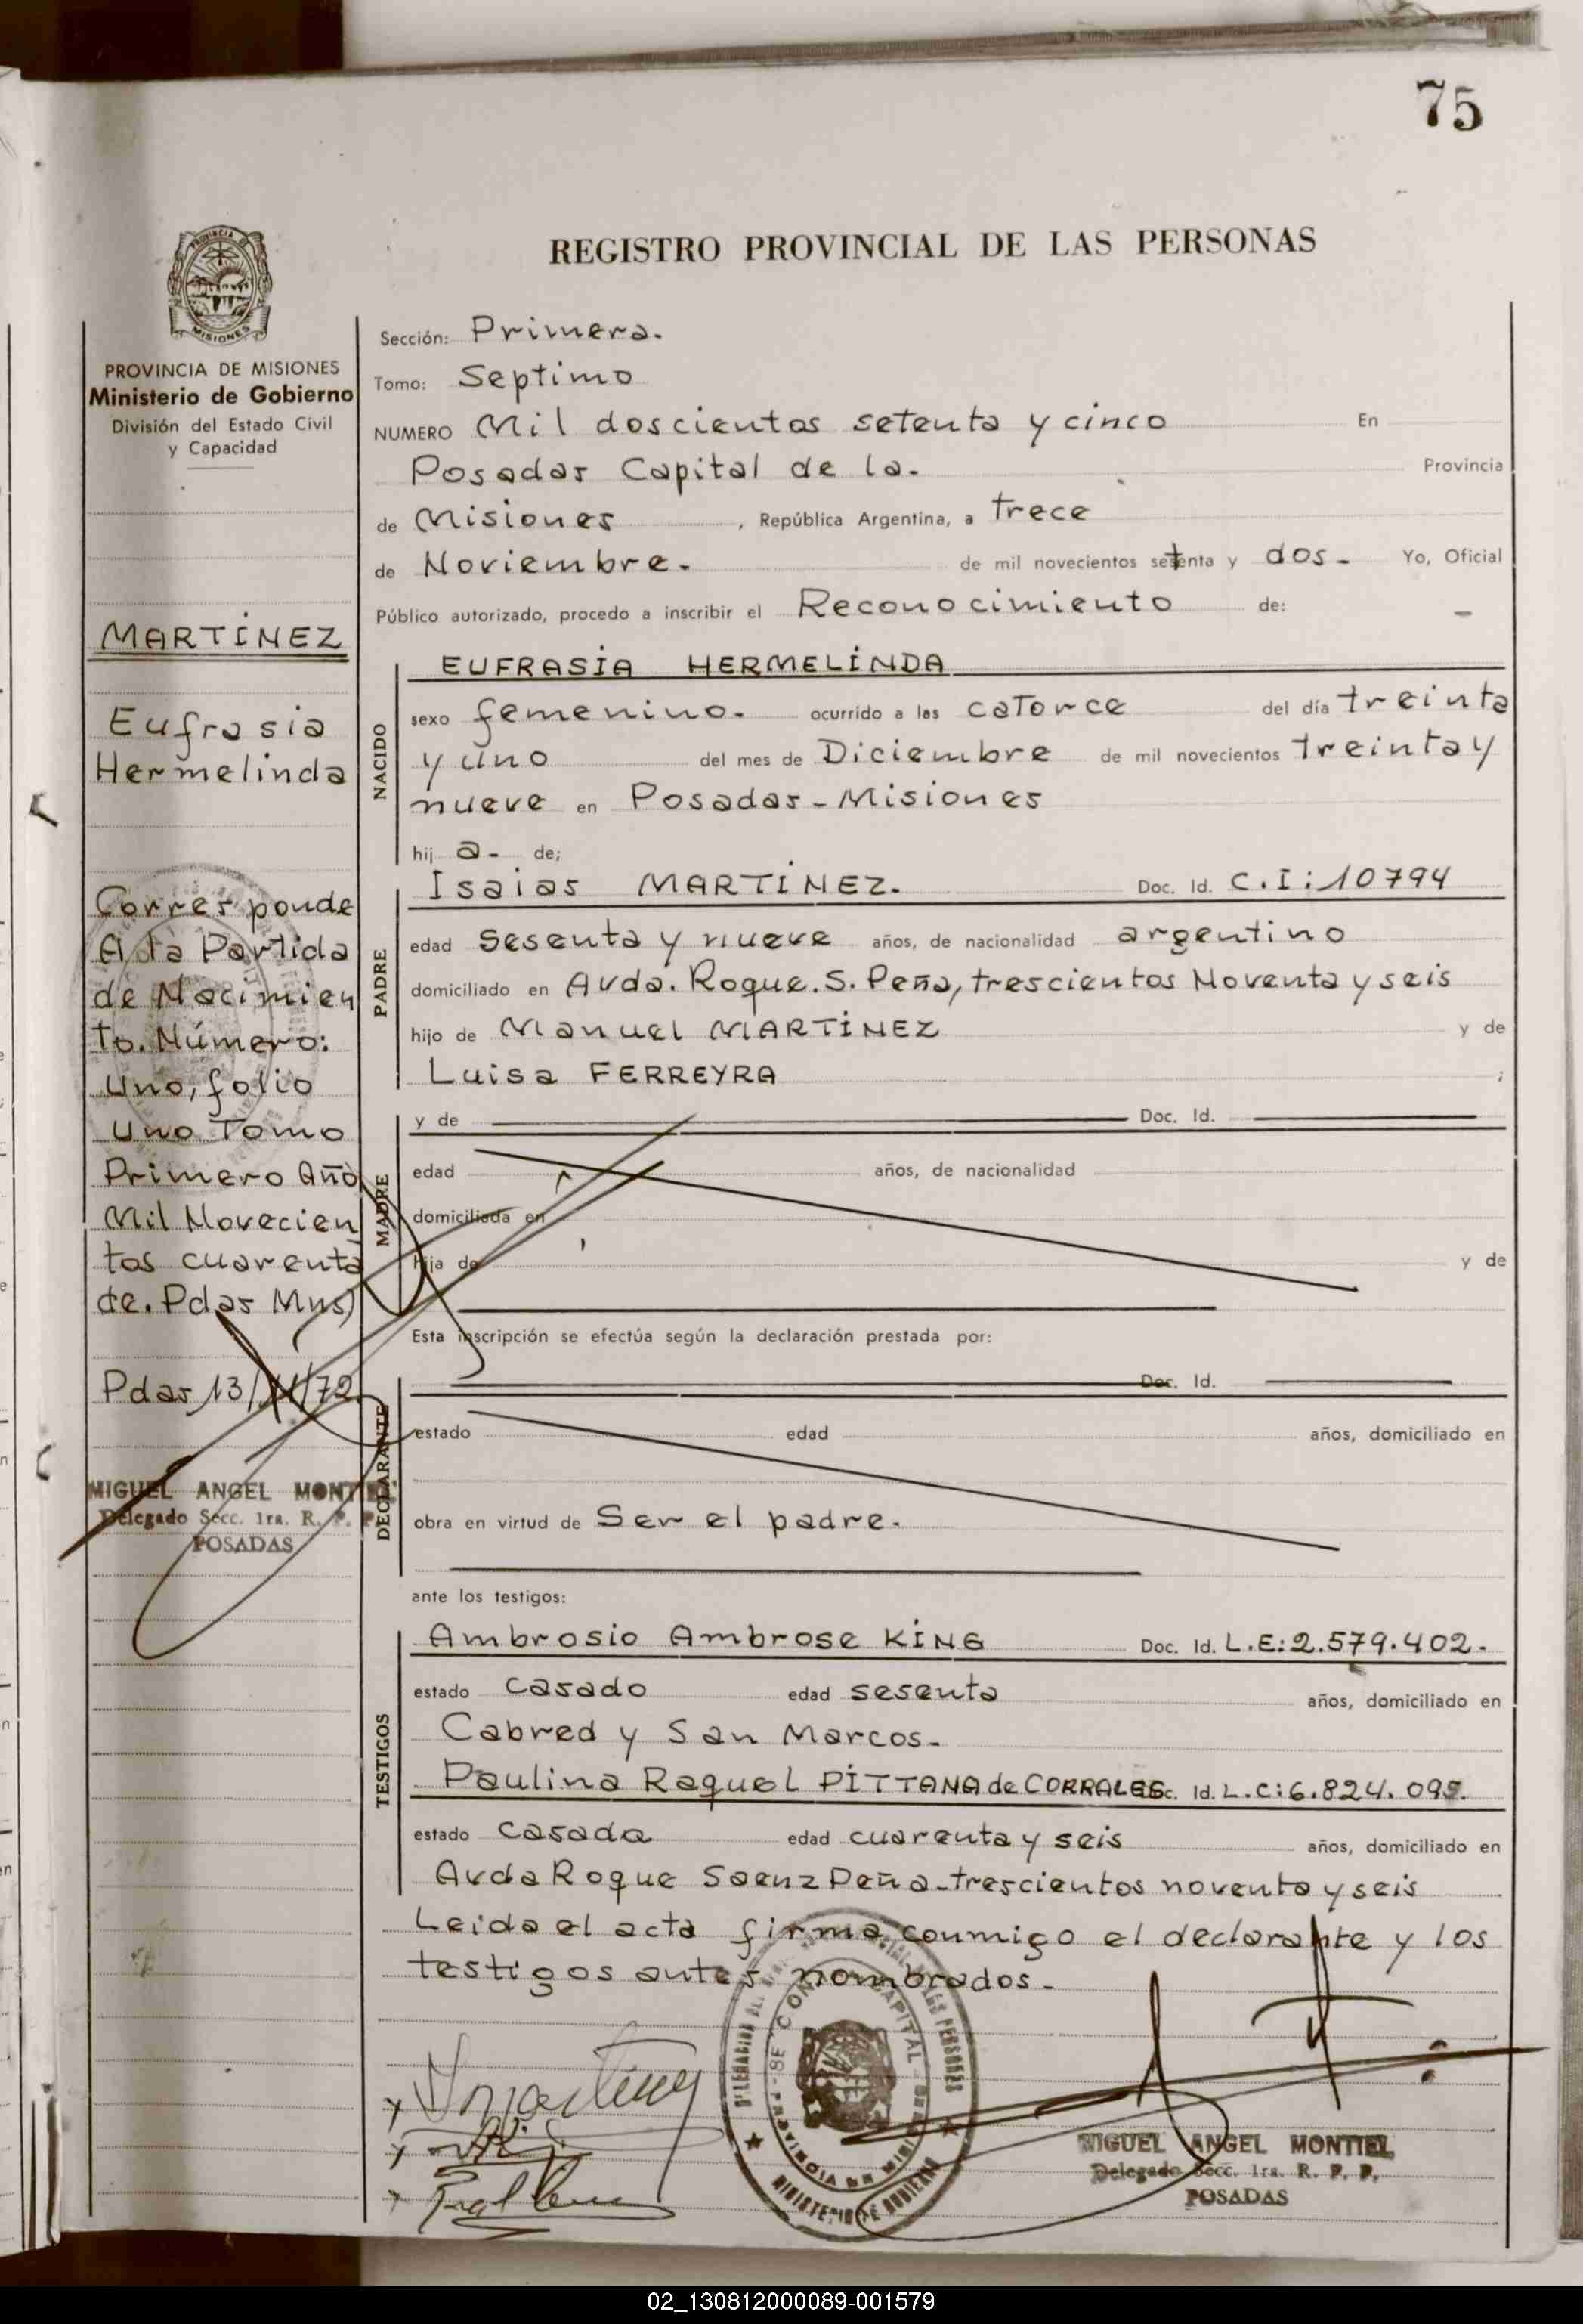 75
REGISTRO PROVINCIAL DE LAS PERSONAS
PROVINCIA DE MISIONES
Ministerio de Gobierno
División del Estado Civil
y Capacidad
MARTÍNEZ
Eufrasia
Hermelinda
Corresponde
A la Partida
de Nacimien
to. Número:
Uno, folio
Uno Tomo
Primero Año
Mil Novecien
tos cuarenta
de. Pdas Mns)
Pdas 13/11/72
MIGUEL ANGEL MONTIEL
Delegado Secc. 1ra. R. P. P.
POSADAS
Sección: Primera.
Tomo: Septimo
NUMERO Mil doscientos setenta y cinco En
Posadas Capital de la. Provincia
de Misiones, República Argentina, a trece
de Noviembre. de mil novecientos setenta y dos. Yo, Oficial
Público autorizado, procedo a inscribir el Reconocimiento de:
NACIDO
EUFRASIA HERMELINDA
sexo femenino. ocurrido a las catorce del día treinta
y uno del mes de Diciembre de mil novecientos treinta y
nueve en Posadas-Misiones
hij a. de;
PADRE
Isaias MARTÍNEZ. Doc. Id. C.I:10794
edad sesenta y nueve años, de nacionalidad argentino
domiciliado en Avda. Roque. S. Peña, trescientos Noventa y seis
hijo de Manuel MARTÍNEZ y de
Luisa FERREYRA ;
MADRE
y de Doc. Id.
edad años, de nacionalidad
domiciliada en
hija de y de
Esta inscripción se efectúa según la declaración prestada por:
DECLARANTE
Doc. Id.
estado edad años, domiciliado en
obra en virtud de Ser el padre.
ante los testigos:
TESTIGOS
Ambrosio Ambrose KING Doc. Id. L.E:2.579.402.
estado casado edad sesenta años, domiciliado en
Cabred y San Marcos.
Paulina Raquel PITTANA de CORRALES Doc. Id. L.C:6.824.099.
estado casada edad cuarenta y seis años, domiciliado en
Avda Roque Saenz Peña-trescientos noventa y seis
Leida el acta firma conmigo el declarante y los
testigos antes nombrados.
MIGUEL ANGEL MONTIEL
Delegado Secc. 1ra. R. P. P.
POSADAS
02_130812000089-001579